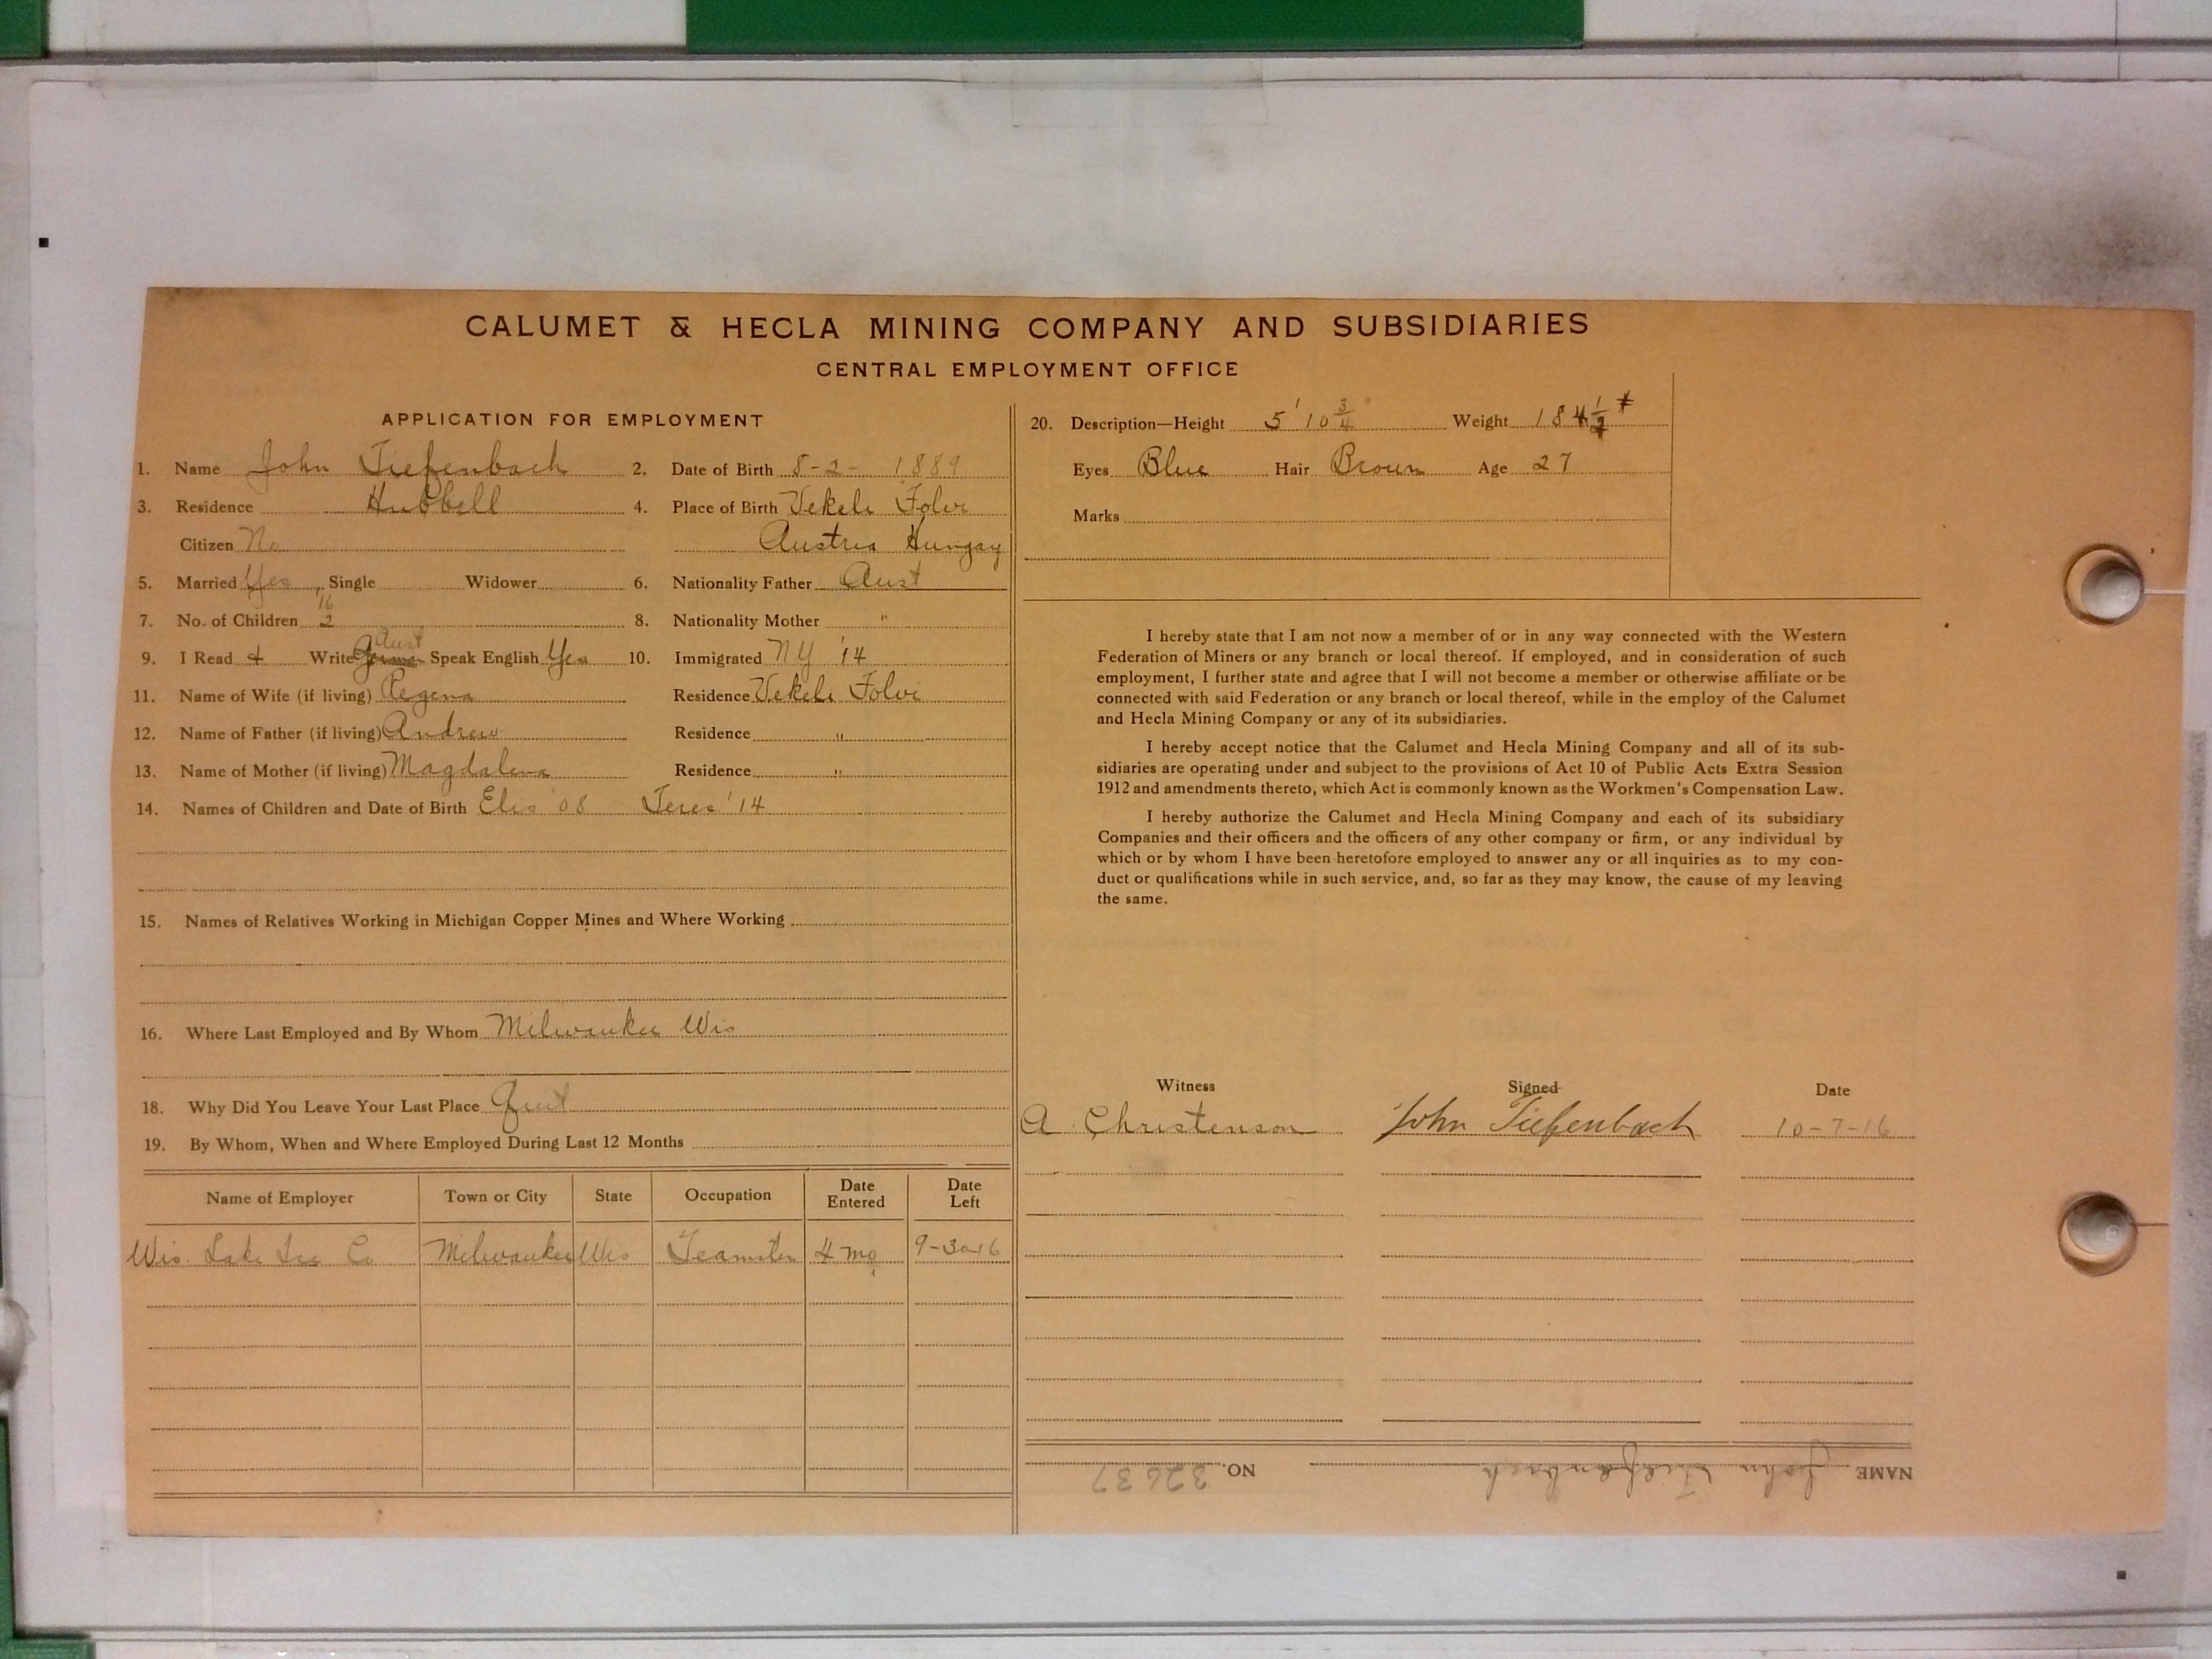 CALUMET & HECLA MINING COMPANY AND SUBSIDIARIES
CENTRAL EMPLOYMENT OFFICE
APPLICATION FOR EMPLOYMENT
1. Name John Tiefenbach 2. Date of Birth 8-2- 1889
3. Residence Hubbell 4. Place of Birth Vekele Folve
Citizen No Austria Hungay
5. Married Yes, Single Widower 6. Nationality Father Aust
16
7. No. of Children 2 8. Nationality Mother "
Aust
9. I Read & Write German Speak English Yes 10. Immigrated NY '14
11. Name of Wife (if living) Regena Residence Vekele Folve
12. Name of Father (if living) Andrew Residence "
13. Name of Mother (if living) Magdalena Residence "
14. Names of Children and Date of Birth Elis '08 Teres '14
15. Names of Relatives Working in Michigan Copper Mines and Where Working
16. Where Last Employed and By Whom Milwaukee Wis
18. Why Did You Leave Your Last Place Quit
19. By Whom, When and Where Employed During Last 12 Months
Name of Employer Town or City State Occupation Date Entered Date Left
Wis. Lake Ice Co Milwaukee Wis Teamster 4 mo 9-30-16
20. Description—Height 5' 10 3/4 Weight 184 1/2 #
Eyes Blue Hair Brown Age 27
Marks
I hereby state that I am not now a member of or in any way connected with the Western
Federation of Miners or any branch or local thereof. If employed, and in consideration of such
employment, I further state and agree that I will not become a member or otherwise affiliate or be
connected with said Federation or any branch or local thereof, while in the employ of the Calumet
and Hecla Mining Company or any of its subsidiaries.
I hereby accept notice that the Calumet and Hecla Mining Company and all of its sub-
sidiaries are operating under and subject to the provisions of Act 10 of Public Acts Extra Session
1912 and amendments thereto, which Act is commonly known as the Workmen's Compensation Law.
I hereby authorize the Calumet and Hecla Mining Company and each of its subsidiary
Companies and their officers and the officers of any other company or firm, or any individual by
which or by whom I have been heretofore employed to answer any or all inquiries as to my con-
duct or qualifications while in such service, and, so far as they may know, the cause of my leaving
the same.
Witness Signed Date
A Christenson John Tiefenbach 10-7-16
NAME John Tiefenbach NO. 32637